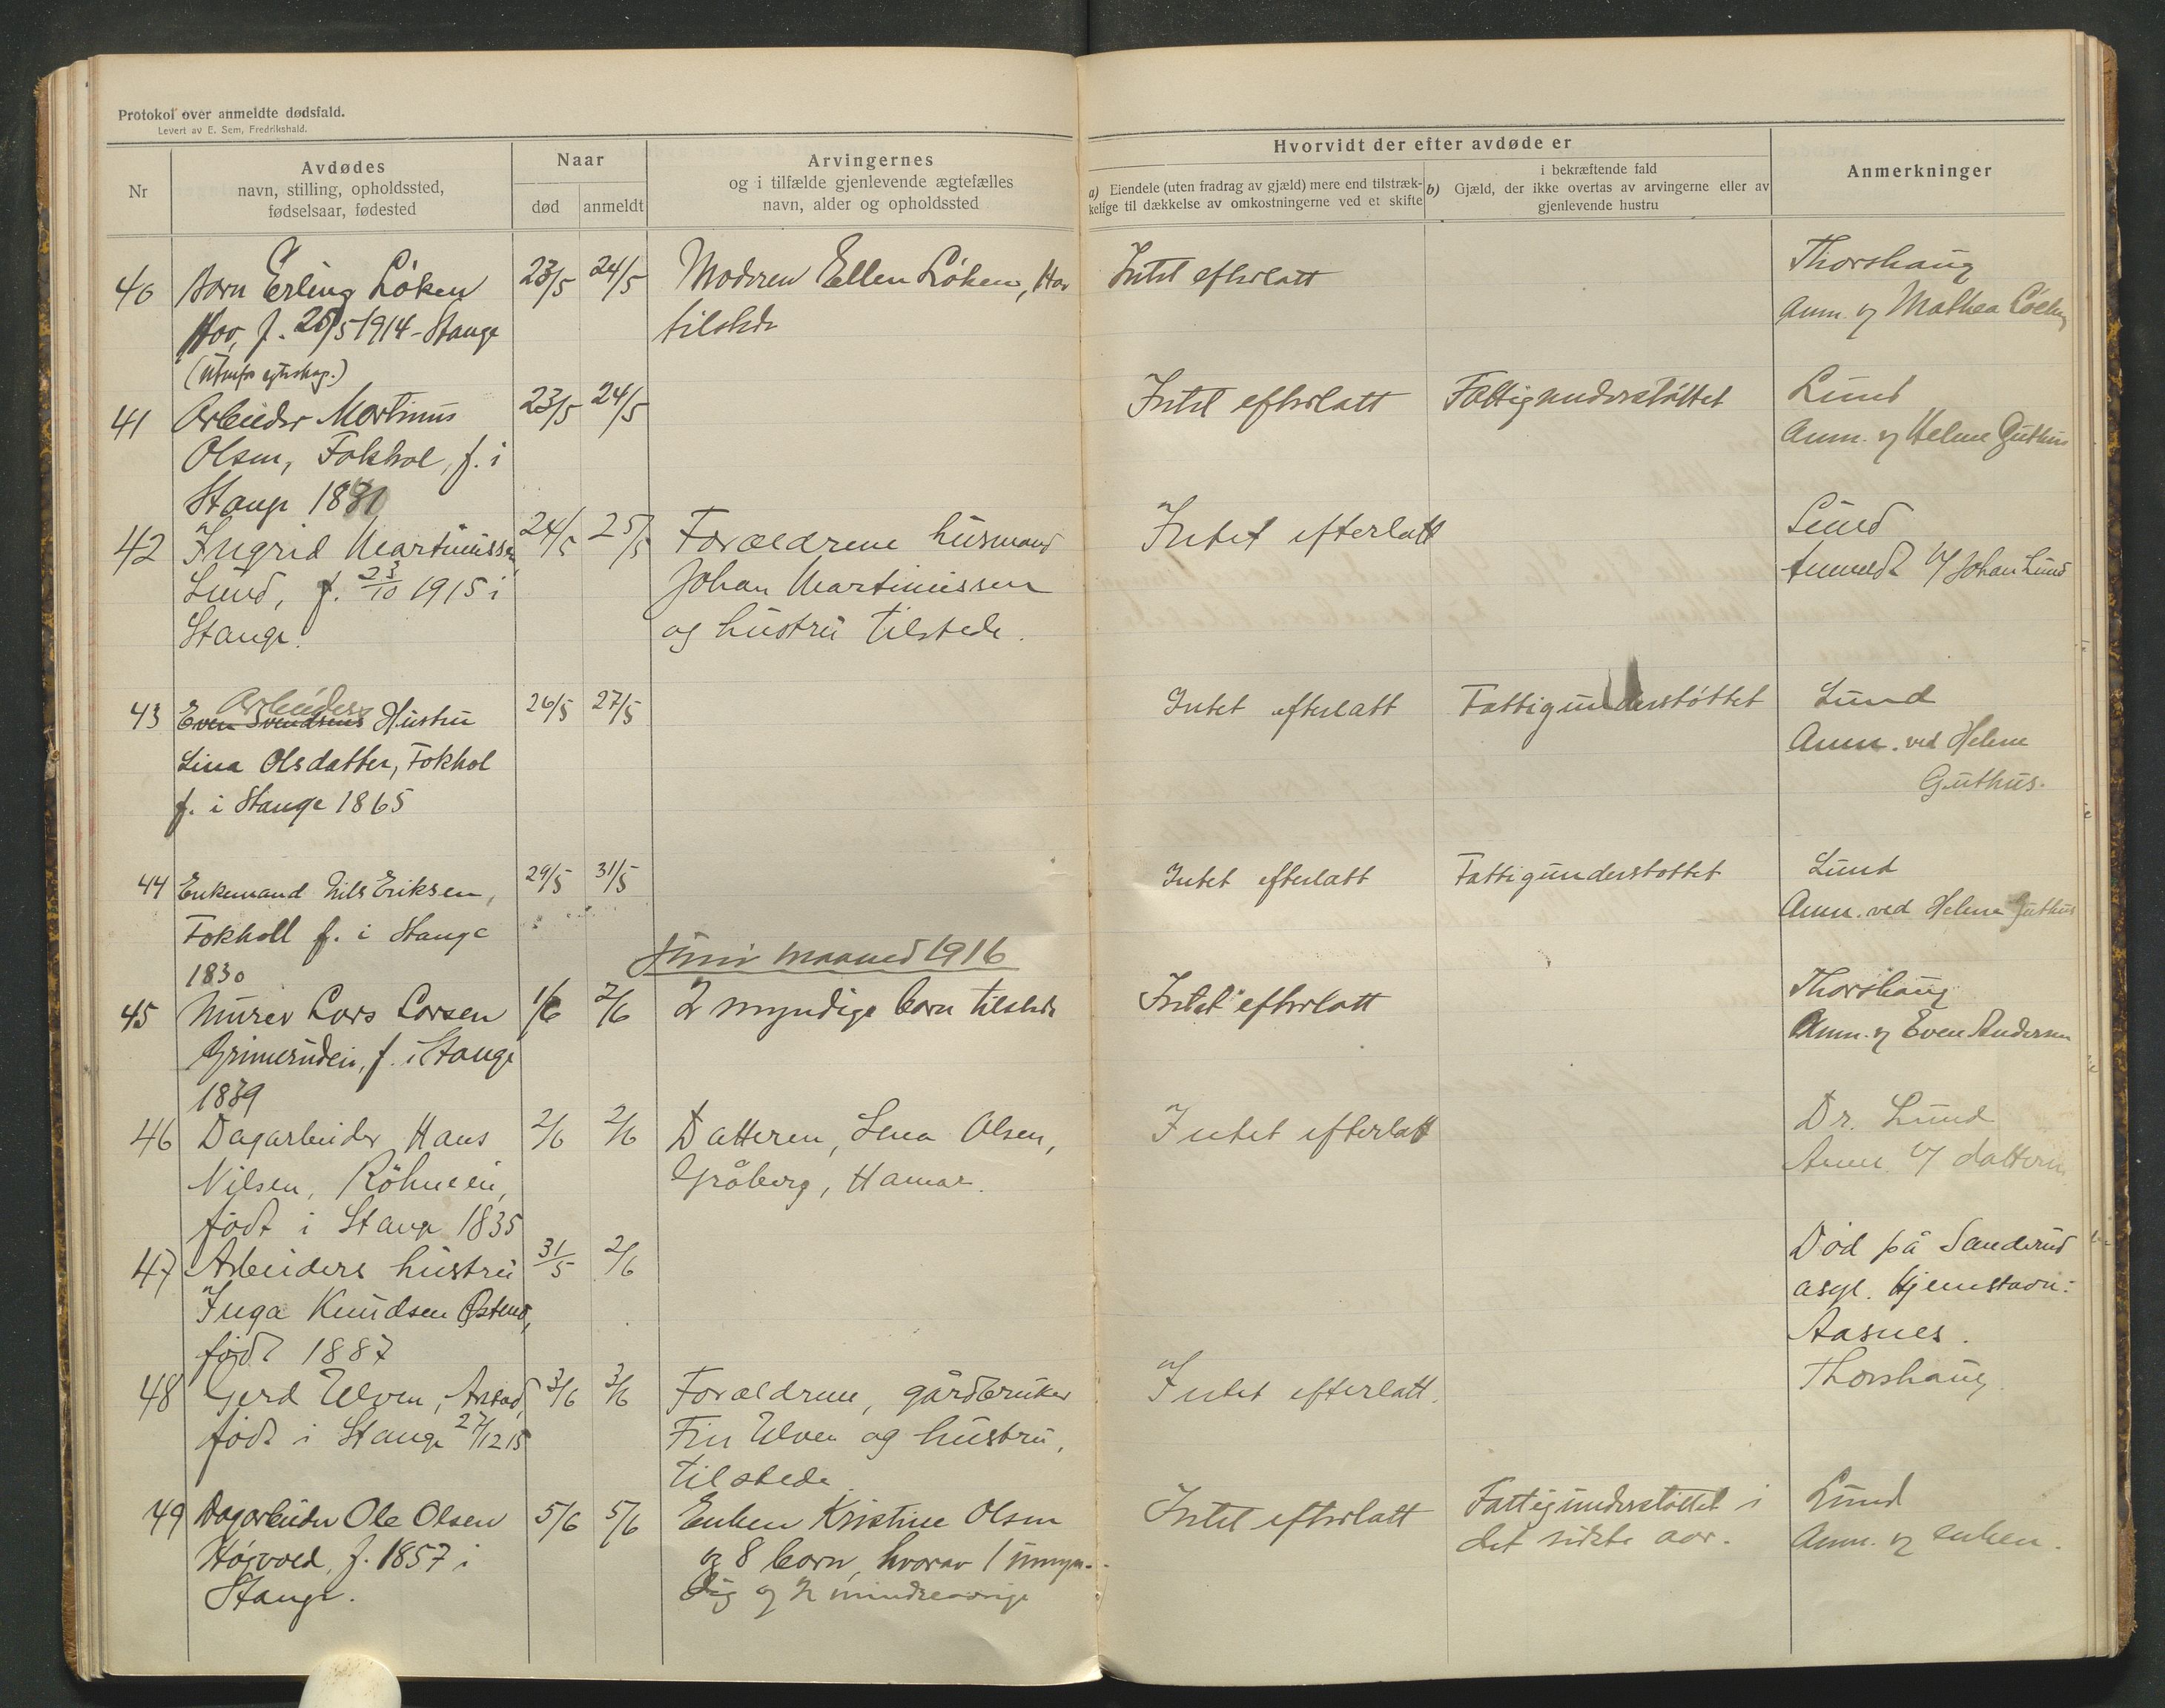 Protokol over anmeldte dødsfald.
Levert av E. Sem, Fredrikshald.
Nr
Avdødes
navn, stilling, opholdssted,
fødselsaar, fødested
Naar
død
anmeldt
Arvingernes
og i tilfælde gjenlevende ægtefælles
navn, alder og opholdssted
Hvorvidt der efter avdøde er
a) Eiendele (uten fradrag av gjæld) mere end tilstræk-
kelige til dækkelse av omkostningerne ved et skifte
i bekræftende fald
b) Gjæld, der ikke overtas av arvingerne eller av
gjenlevende hustru
Anmerkninger
40 Barn Erling Løken 23/5 24/5 Moderen Ellen Løken, Hov Intet efterlatt Thorshaug
Hov, f. 25/5 1914 - Stange tilstede Anm. v/ Mathea Løken
41 Arbeider Martinus 23/5 24/5 Intet efterlatt Fattigunderstøttet Lund
Olsen, Fokhol, f. i Anm. v/ Helene Guthus
Stange 1881
42 Ingrid Martinussen 24/5 25/5 Forældrene husmand Intet efterlatt Lund
Lund, f. 23/10 1915 i Johan Martinussen Anmeldt v/ Johan Lund
Stange. og hustru tilstede.
Arbeiders
43 Even Svendsens Hustru 26/5 27/5 Intet efterlatt Fattigunderstøttet Lund
Lina Olsdatter, Fokhol Anm. ved Helene
f. i Stange 1865 Guthus.
44 Enkemand Nils Eriksen, 29/5 31/5 Intet efterlatt Fattigunderstøttet Lund
Fokholl f. i Stange Anm. ved Helene Guthus
1830
Juni maaned 1916
45 Murer Lars Larsen 1/6 2/6 2 myndige barn tilstede Intet efterlatt Thorshaug
Grimerudei, f. i Stange Anm. v/ Even Andersen
1839
46 Dagarbeider Hans 2/6 2/6 Datteren, Lena Olsen, Intet efterlatt Dr. Lund
Nilsen, Gråberg, Hamar. Anm. v/ datteren
født i Stange 1835
47 Arbeiders hustru 31/5 2/6 Død på Sanderud
Inga Knudsen asyl. Hjemstavn:
født 1887 Aasnes.
48 Gerd Ulven, 3/6 3/6 Forældrene, gårdbruker Intet efterlatt. Thorshaug
født i Stange 27/12 15 Fin Ulven og hustru,
tilstede
49 Dagarbeider Ole Olsen 5/6 5/6 Enken Kristine Olsen Intet efterlatt Fattigunderstøttet i Lund
Høivold, f. 1857 i og 8 barn, hvorav 1 umyn- det sidste aar. Anm. v/ enken.
Stange. dig og 2 mindreaarige